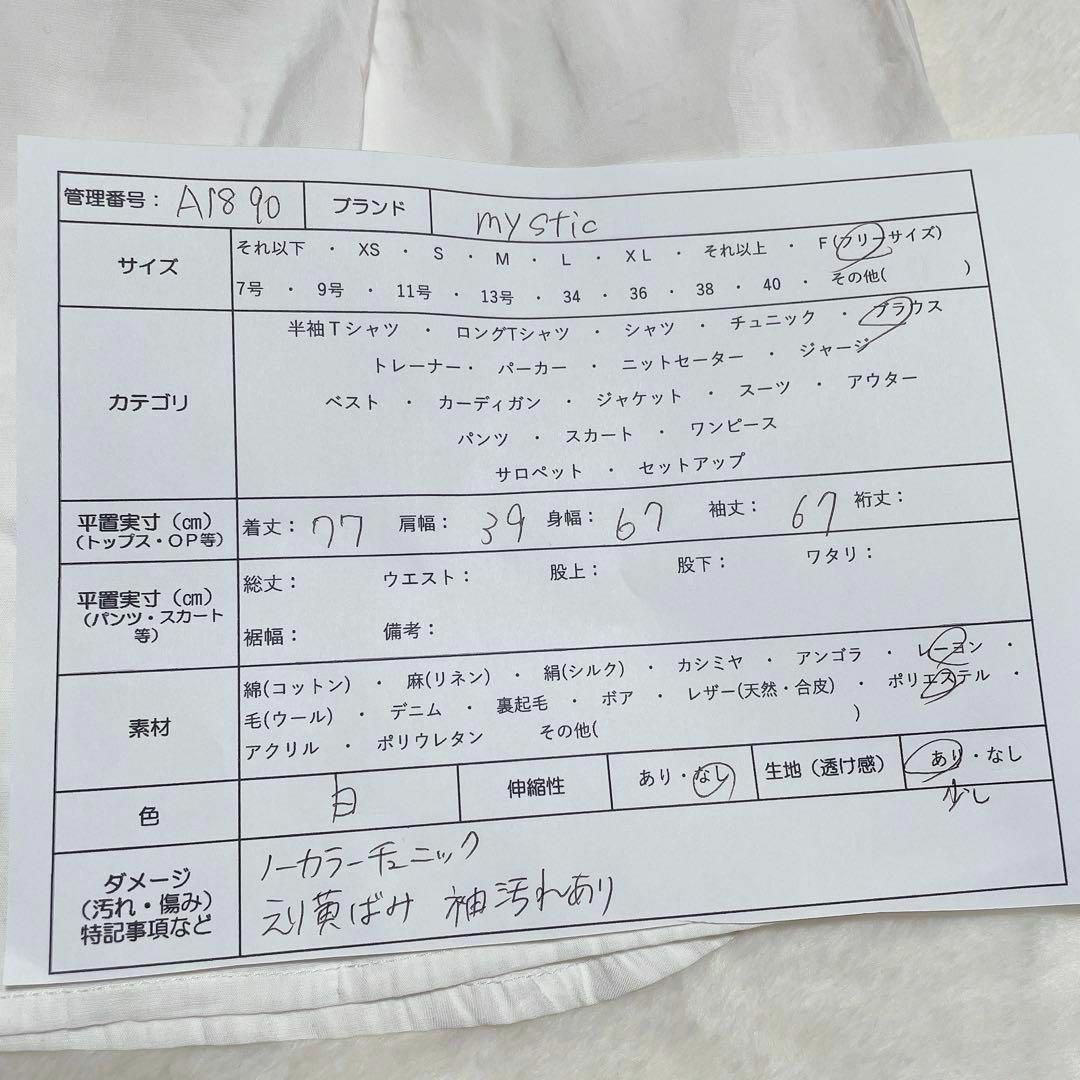 管理番号: A1890 ブランド mystic
サイズ それ以下 ・ XS ・ S ・ M ・ L ・ XL ・ それ以上 ・ F(フリーサイズ)
7号 ・ 9号 ・ 11号 ・ 13号 ・ 34 ・ 36 ・ 38 ・ 40 ・ その他( )
カテゴリ
半袖Tシャツ ・ ロングTシャツ ・ シャツ ・ チュニック ・ ブラウス
トレーナー・ パーカー ・ ニットセーター ・ ジャージ
ベスト ・ カーディガン ・ ジャケット ・ スーツ ・ アウター
パンツ ・ スカート ・ ワンピース
サロペット ・ セットアップ
平置実寸(㎝)
(トップス・OP等)
着丈: 77 肩幅: 39 身幅: 67 袖丈: 67 裄丈:
平置実寸(㎝)
(パンツ・スカート
等)
総丈: ウエスト: 股上: 股下: ワタリ:
裾幅: 備考:
素材
綿(コットン) ・ 麻(リネン) ・ 絹(シルク) ・ カシミヤ ・ アンゴラ ・ レーヨン ・
毛(ウール) ・ デニム ・ 裏起毛 ・ ボア ・ レザー(天然・合皮) ・ ポリエステル ・
アクリル ・ ポリウレタン その他( )
色 白 伸縮性 あり・なし 生地(透け感) あり・なし
少し
ダメージ
(汚れ・傷み)
特記事項など
ノーカラーチュニック
えり黄ばみ 袖汚れあり